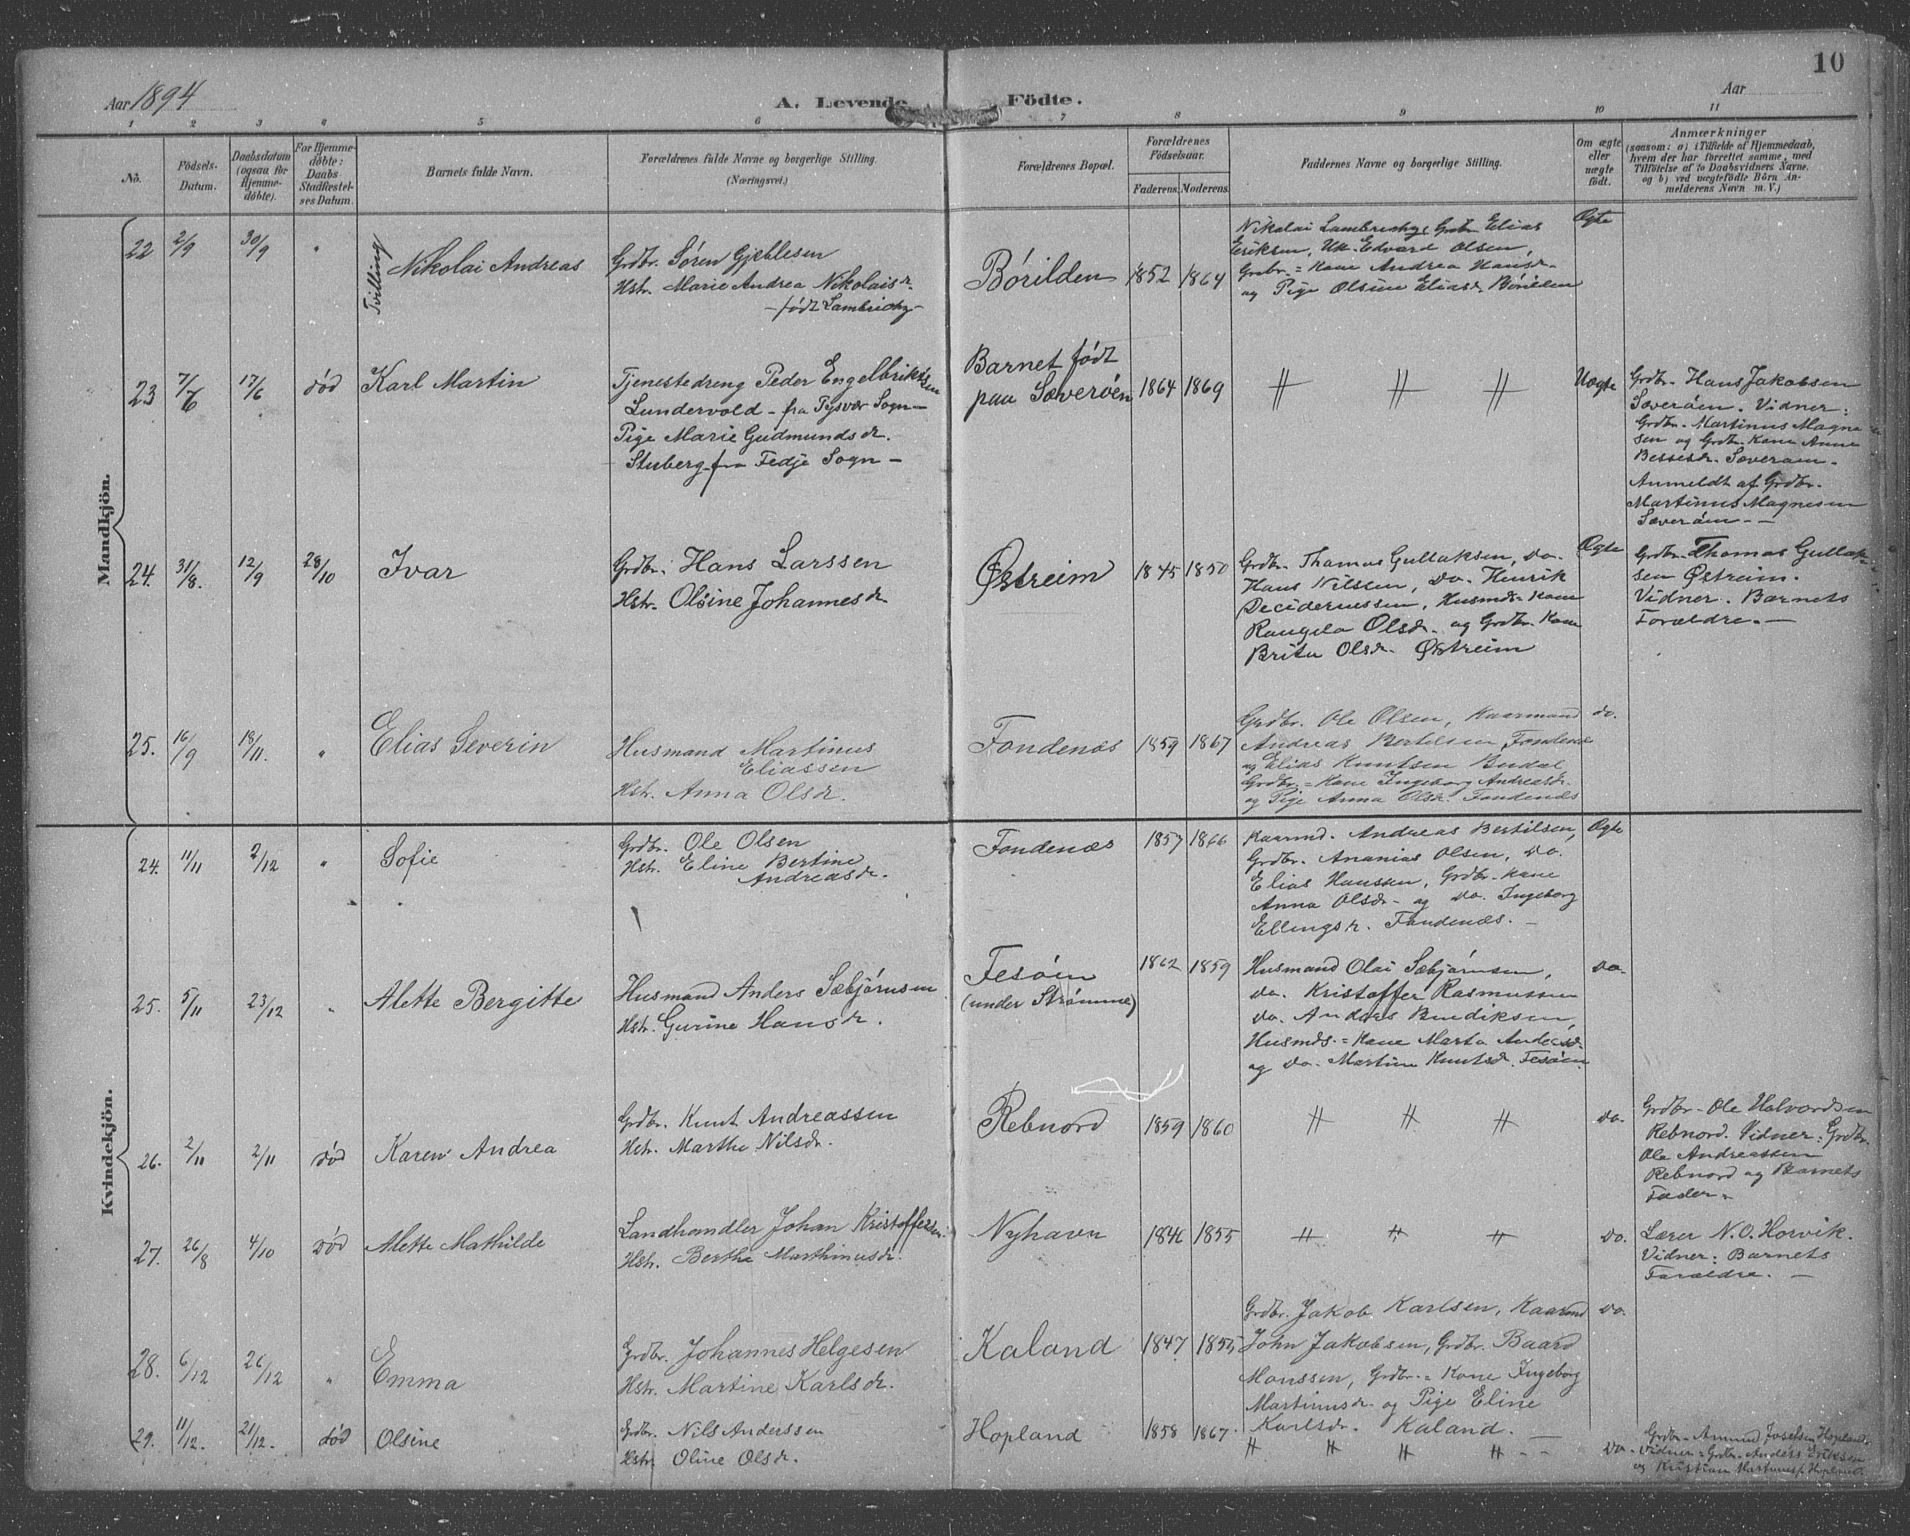 10
Aar 1894
A. Levende Födte.
Aar
1 2 3 4 5 6 7 8 9 10 11
No.
Födsels-Datum.
Daabsdatum (ogsaa for Hjemmedöbte).
For Hjemmedöbte: Daabs Stadfæstelses Datum.
Barnets fulde Navn.
Forældrenes fulde Navne og borgerlige Stilling.
(Næringsvei.)
Forældrenes Bopæl.
Forældrenes Födselsaar.
Faderens. Moderens.
Faddernes Navne og borgerlige Stilling.
Om ægte eller uægte födt.
Anmærkninger
(saasom: a) i Tilfælde af Hjemmedaab, hvem der har forrettet samme, med Tilföielse af to Daabsvidners Navne. og b) ved uægtefödte Börn Anmelderens Navn m. V.)
Mandkjön.
22 2/9 30/9 " Tvilling Nikolai Andreas
Grdbr. Søren Gjeblesen
Hstr. Marie Andrea Nikolaisdr.
- født Lambrichs -
Børilden 1852 1864
Nikolai Lambrichs, Grdbr Elias
Eriksen, Uk. Edvard Olsen,
Grdbr = Kone Andrea Hansdr
og Pige Olsine Eliasdr Børilden
Ægte
23 7/6 17/6 død Karl Martin
Tjenestedreng Peder Engelbriktsen
Lundervold - fra Tysvær Sogn -
Pige Marie Gudmundsdr.
Stuberg fra Fedje Sogn -
Barnet født
paa Sæverøen 1864 1869
" " "
Uægte
Grdbr. Hans Jakobsen
Sæverøen. Vidner:
Grdbr. Martinus Magne-
sen og Grdbr. Kone Anne
Bessesdr. Sæverøen.
Anmeldt af Grdbr.
Martinus Magnesen
Sæverøen - -
24. 31/8. 12/9 28/10 Ivar
Grdbr. Hans Larssen
Hstr. Olsine Johannesdr
Østreim 1845 1850
Grdbr. Thomas Gullaksen, do.
Hans Nilssen, do. Henrik
Decideriussen, Husmds = Kone
Rangela Olsdr. og Grdbr. Kone
Brita Olsdr. Østreim
Ægte
Grdbr. Thomas Gullak-
sen Østreim.
Vidner. Barnets
Forældre. -
25. 16/9 18/11. " Elias Severin
Husmand Martinus
Eliassen
Hstr. Anna Olsdr.
Fondenæs 1859 1867
Grdbr. Ole Olsen, Kaarmand
Andreas Bertilsen Fondenæs
og Elias Knutsen Budal
Grdbr. = Kone Ingeborg Andreasdr.
og Pige Anna Olsdr. Fondenæs
do.
Kvindekjön.
24. 11/11 2/12 " Sofie
Grdbr. Ole Olsen
Hstr. Eline Bertine
Andreasdr.
Fondenæs 1857 1866
Kaarmd. Andreas Bertilsen,
Grdbr. Ananias Olsen, do.
Elias Hanssen, Grdbr. Kone
Anna Olsdr - og do. Ingeborg
Ellingsdr. Fondenæs. -
Ægte
25. 5/11 23/12 " Alette Bergitte
Husmand Anders Sæbjørnsen
Hstr. Gurine Hansdr.
Fesøen
(under Strømme) 1862 1859
Husmand Olai Sæbjørnsen,
do. Kristoffer Rasmussen
do. Anders Bendiksen,
Husmds. = Kone Marta Andersdr
og do. Martine Knutsdr. Fesøen.
do.
26. 2/11 2/11 død Karen Andrea
Grdbr. Knut Andreassen
Hstr. Marthe Nilsdr.
Rebnord 1859 1860
" " "
do.
Grdbr. Ole Halvordsen
Rebnord. Vidner: Grdbr.
Ole Andreassen
Rebnord og Barnets
Fader.
27. 26/8 4/10 død Alette Mathilde
Landhandler Johan Kristoffersen
Hstr. Berthe Marthinusdr.
Nyhavn 1846 1855
" " "
do.
Lærer N. O. Horvik.
Vidner: Barnets
Forældre. -
28. 6/12 26/12 " Emma
Grdbr. Johannes Helgesen
Hstr. Martine Karlsdr.
Kaland 1847 1855
Grdbr. Jakob Karlsen, Kaarmd
John Jakobsen, Grdbr. Baard
Monssen, Grdbr. = Kone Ingeborg
Martinusdr. og Pige Eline
Karlsdr. Kaland. -
do.
29. 11/12. 21/12. død Olsine
Grdbr. Nils Anderssen
Hstr. Oline Olsdr.
Hopland 1858 1867.
" " " " - -
do.
Grdbr. Amund Josefsen Hopland.
Vidner = Grdbr. Anders Eriksen
og Kristian Hopland.